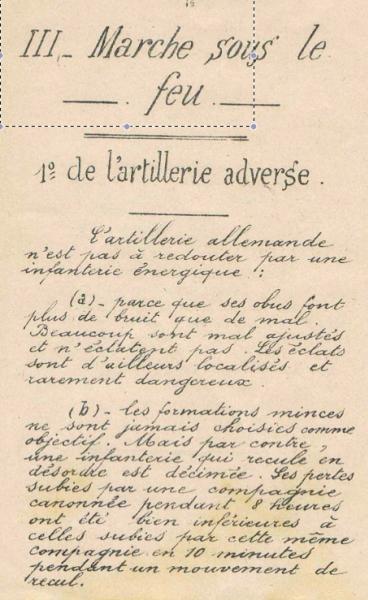 III_ Marche sous le
feu.
1º de l'artillerie adverse.
L'artillerie allemande
n'est pas à redouter par une
infanterie énergique :
(a) - parce que ses obus font
plus de bruit que de mal.
Beaucoup sont mal ajustés
et n'éclatent pas. Les éclats
sont d'ailleurs localisés et
rarement dangereux.
(b) - les formations minces
ne sont jamais choisies comme
objectif. Mais par contre,
une infanterie qui recule en
désordre est décimée. Les pertes
subies par une compagnie
canonnée pendant 8 heures
ont été bien inférieures à
celles subies par cette même
compagnie en 10 minutes
pendant un mouvement de
recul.